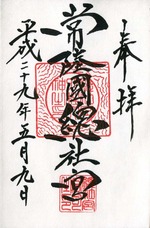 奉拝
常陸國總社宮
平成二十九年五月九日